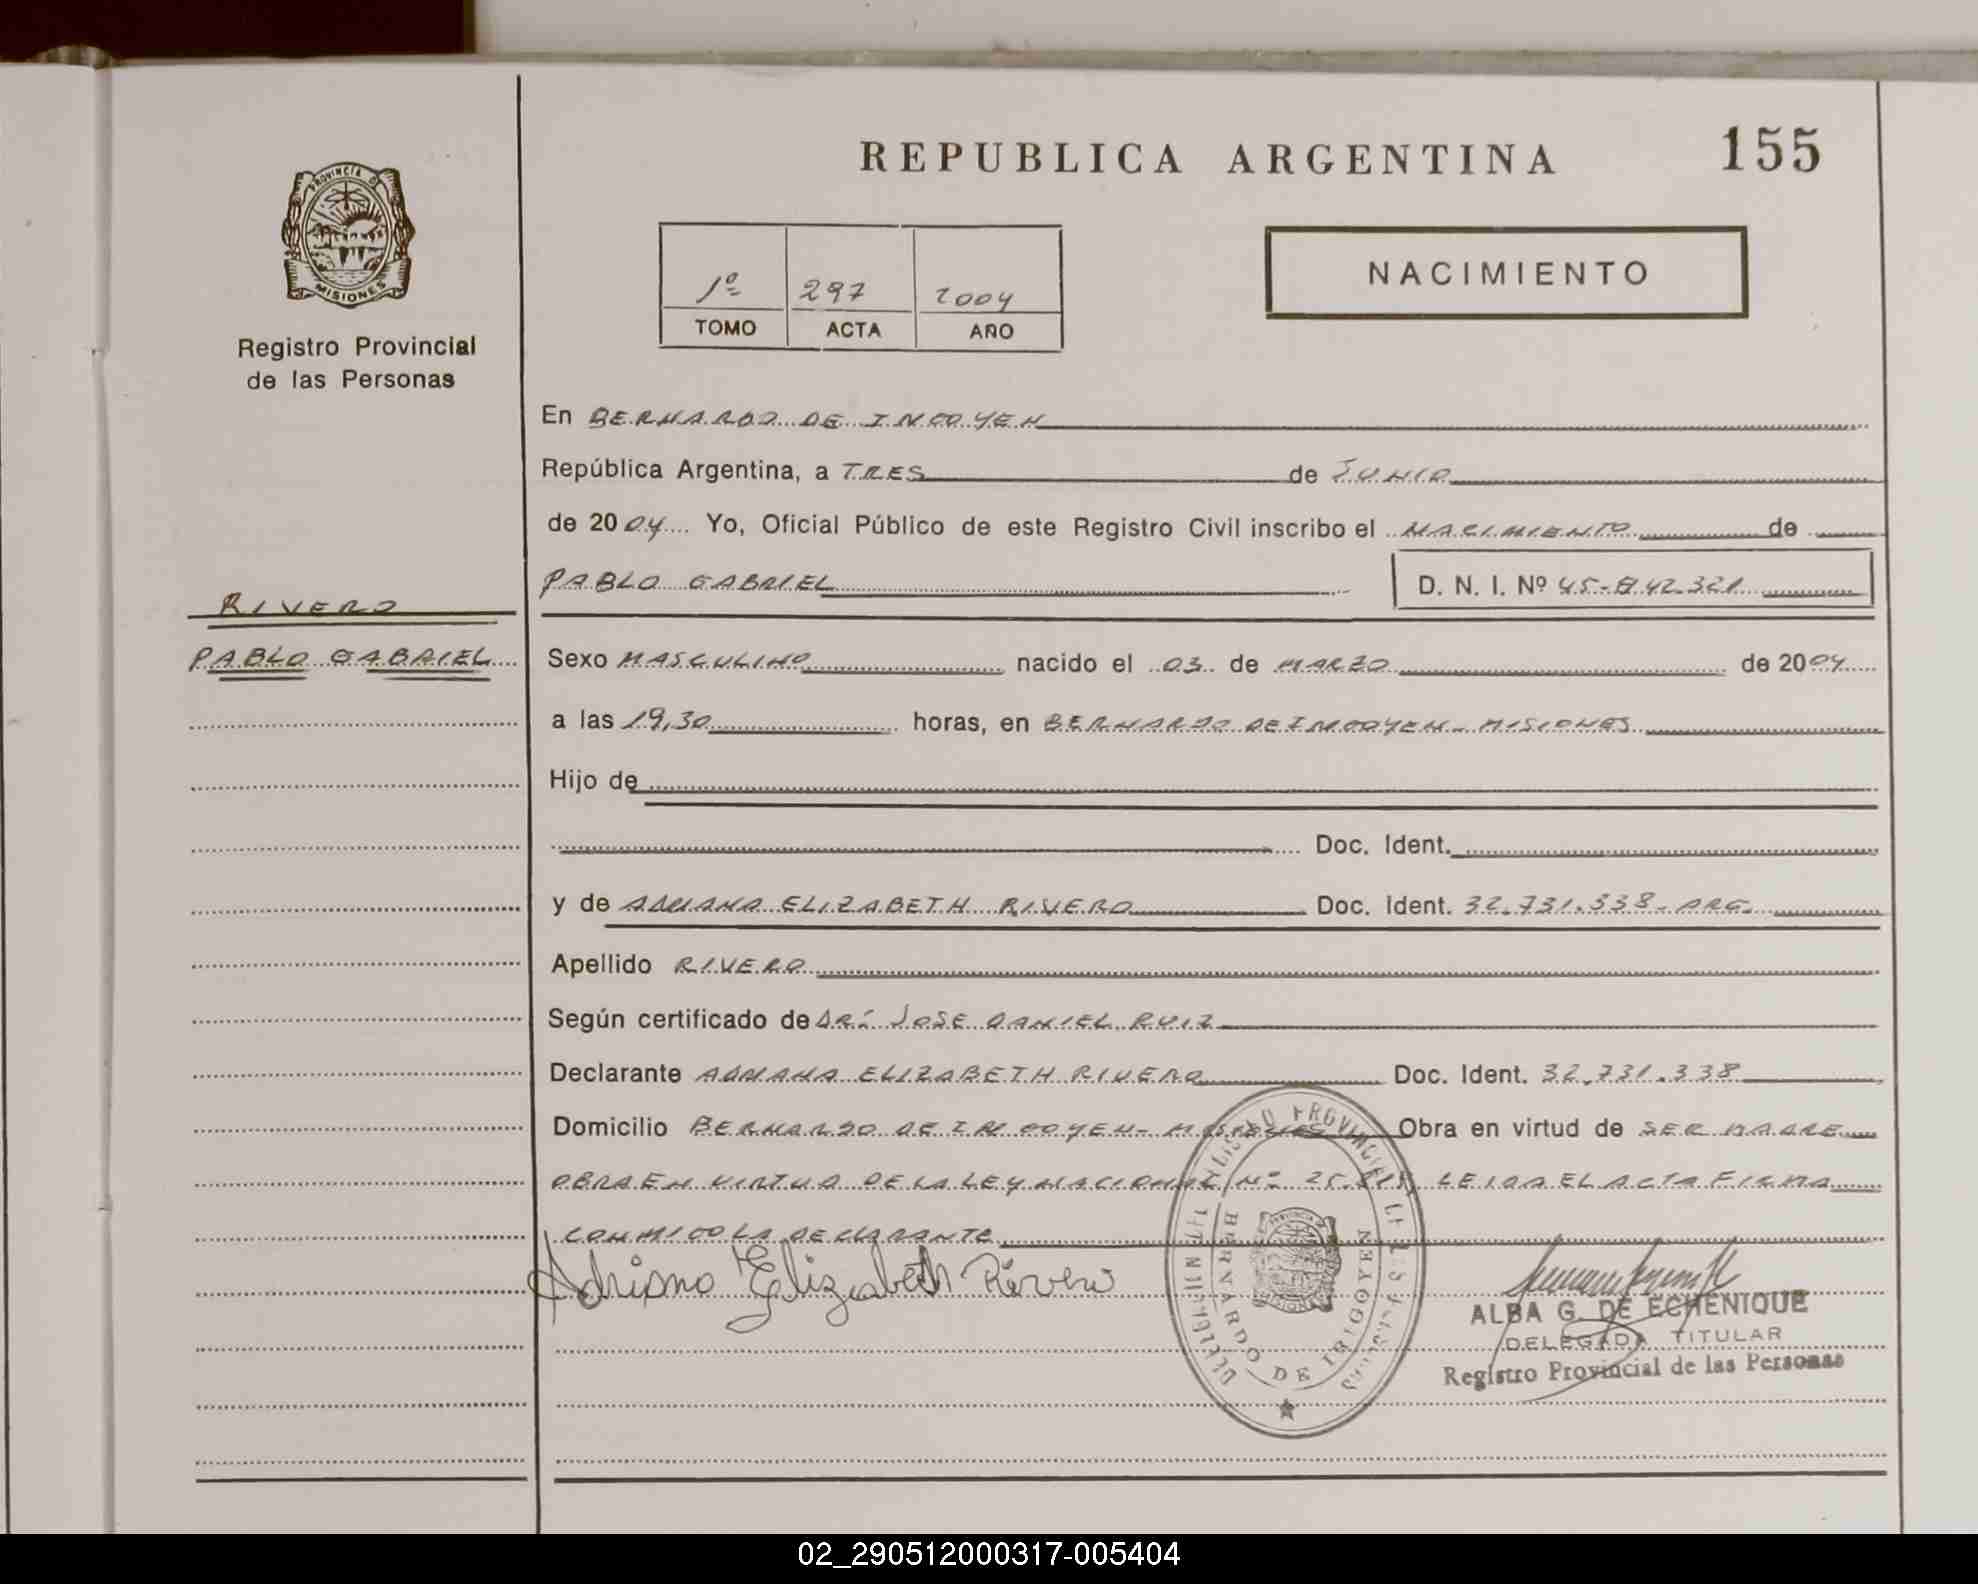 REPUBLICA ARGENTINA
155
PROVINCIA DE
MISIONES
Registro Provincial
de las Personas
1º 297 2004
TOMO ACTA AÑO
NACIMIENTO
En BERNARDO DE IRIGOYEN
República Argentina, a TRES de JUNIO
de 2004 Yo, Oficial Público de este Registro Civil inscribo el NACIMIENTO de
PABLO GABRIEL D. N. I. Nº 45-842.321
RIVERO
PABLO GABRIEL
Sexo MASCULINO nacido el 03 de MARZO de 2004
a las 19,30 horas, en BERNARDO DE IRIGOYEN - MISIONES
Hijo de
Doc. Ident.
y de ADRIANA ELIZABETH RIVERO Doc. Ident. 32.731.338- ARG.
Apellido RIVERO
Según certificado de DR: JOSE DANIEL RUIZ
Declarante ADRIANA ELIZABETH RIVERO Doc. Ident. 32.731.338
Domicilio BERNARDO DE IRIGOYEN- MISIONES Obra en virtud de SER MADRE
OBRA EN VIRTUD DE LA LEY NACIONAL Nº 25. LEIDA EL ACTA FIRMA
CONMIGO LA DECLARANTE
Adriana Elizabeth Rivero
BERNARDO DE IRIGOYEN
ALBA G. DE ECHENIQUE
DELEGADA TITULAR
Registro Provincial de las Personas
02_290512000317-005404